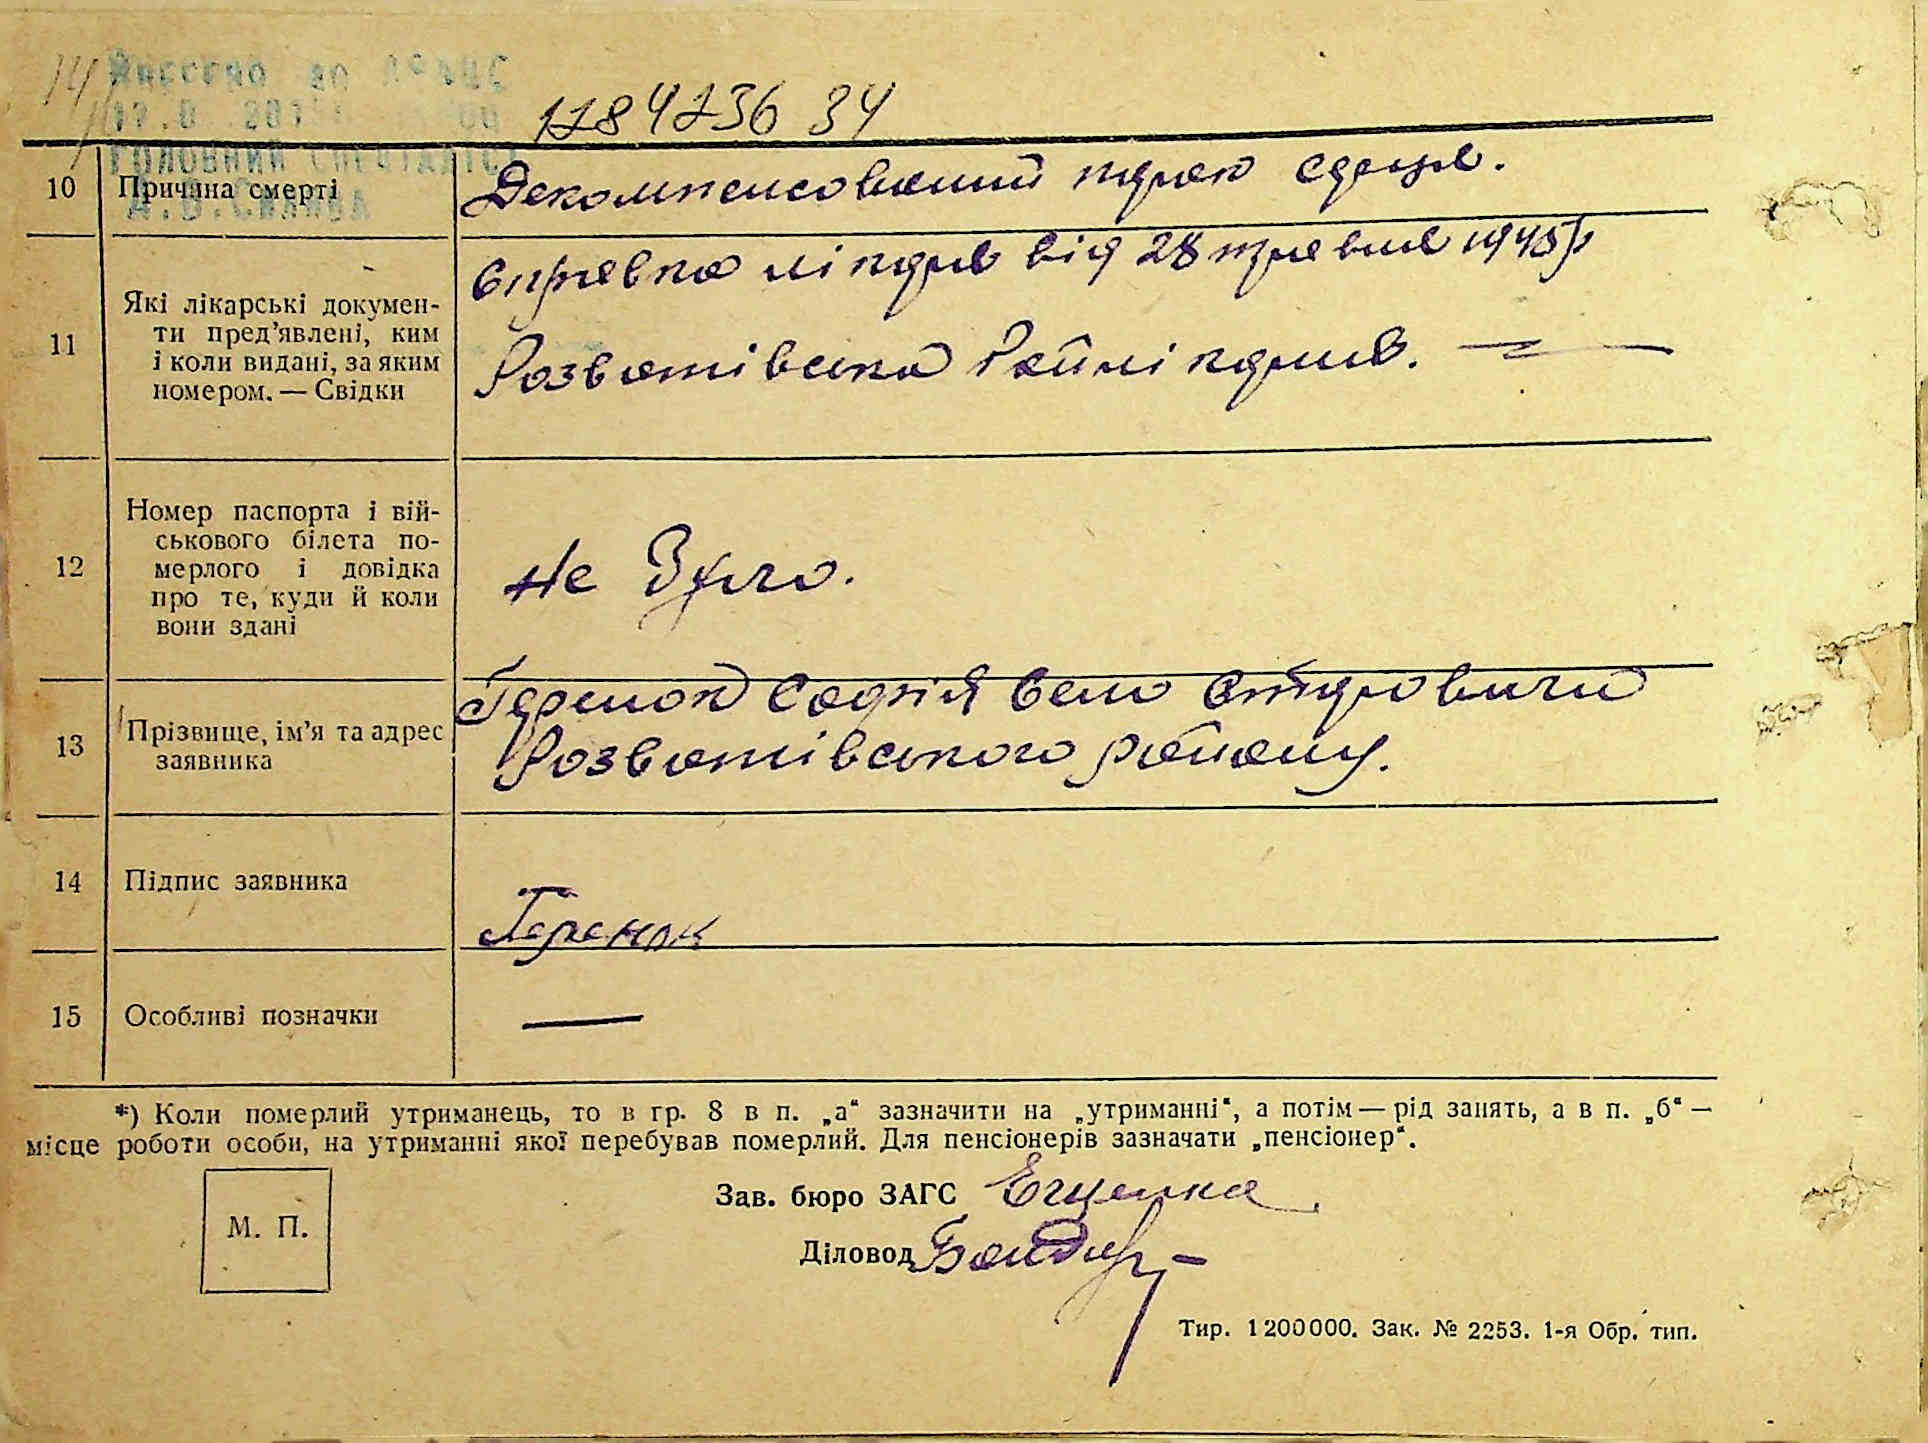 14
Внесено до ДРАЦС
ГОЛОВНИЙ СПЕЦІАЛІСТ
10 Причина смерті Декомпенсований порок серця.
11 Які лікарські докумен-
ти пред’явлені, ким
і коли видані, за яким
номером. — Свідки
Справка лікаря від 28 травня 1945р
Розватівська Райлікарня.
12 Номер паспорта і вій-
ськового білета по-
мерлого і довідка
про те, куди й коли
вони здані
не Було.
13 Прізвище, ім’я та адрес
заявника
Софія село
Розватівського району.
14 Підпис заявника
15 Особливі позначки —
*) Коли померлий утриманець, то в гр. 8 в п. „а“ зазначити на „утриманні“, а потім — рід занять, а в п. „б“ —
місце роботи особи, на утриманні якої перебував померлий. Для пенсіонерів зазначати „пенсіонер“.
М. П.
Зав. бюро ЗАГС
Діловод
Тир. 1200000. Зак. № 2253. 1-я Обр. тип.